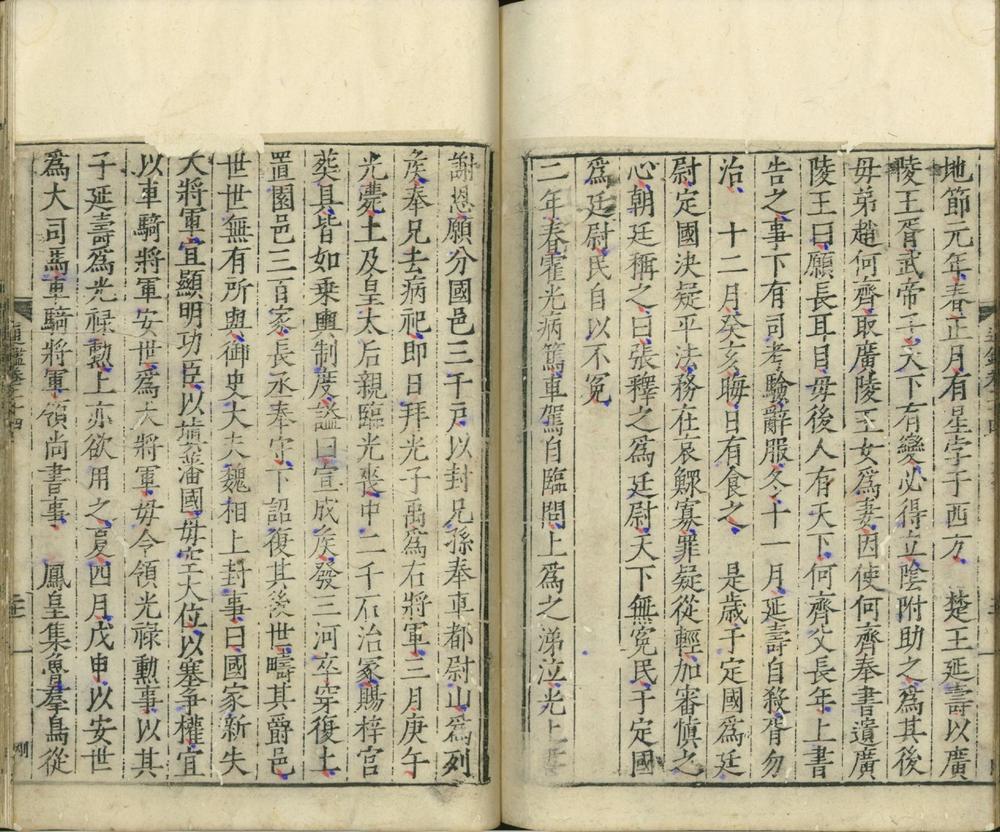 地節元年春正月有星孛于西方　楚王延壽以廣
陵王胥武帝子天下有變必得立陰附助之爲其後
母弟趙何齊取廣陵王女爲妻因使何齊奉書遺廣
陵王曰願長耳目毋後人有天下何齊父長年上書
告之事下有司考驗辭服冬十一月延壽自殺胥勿
治　十二月癸亥晦日有食之　是歲于定國爲廷
尉定國決疑平法務在哀鰥寡罪疑從輕加審慎之
心朝廷稱之曰張釋之爲廷尉天下無冤民于定國
爲廷尉民自以不冤
二年春霍光病篤車駕自臨問上爲之涕泣光上書
謝恩願分國邑三千戸以封兄孫奉車都尉山爲列
侯奉兄去病祀即日拜光子禹爲右將軍三月庚午
光薨上及皇太后親臨光喪中二千石治冢賜梓宮
葬具皆如乗輿制度謚曰宣成侯發三河卒穿復土
置園邑三百家長丞奉守下詔復其後世疇其爵邑
世世無有所與御史大夫魏相上封事曰國家新失
大將軍宜顯明功臣以塡藩國毋空大位以塞爭權宜
以車騎將軍安世爲大將軍毋令領光祿勲事以其
子延壽爲光祿勲上亦欲用之夏四月戊申以安世
爲大司馬車騎將軍領尚書事　鳳皇集魯羣鳥從
通鑑卷二十四